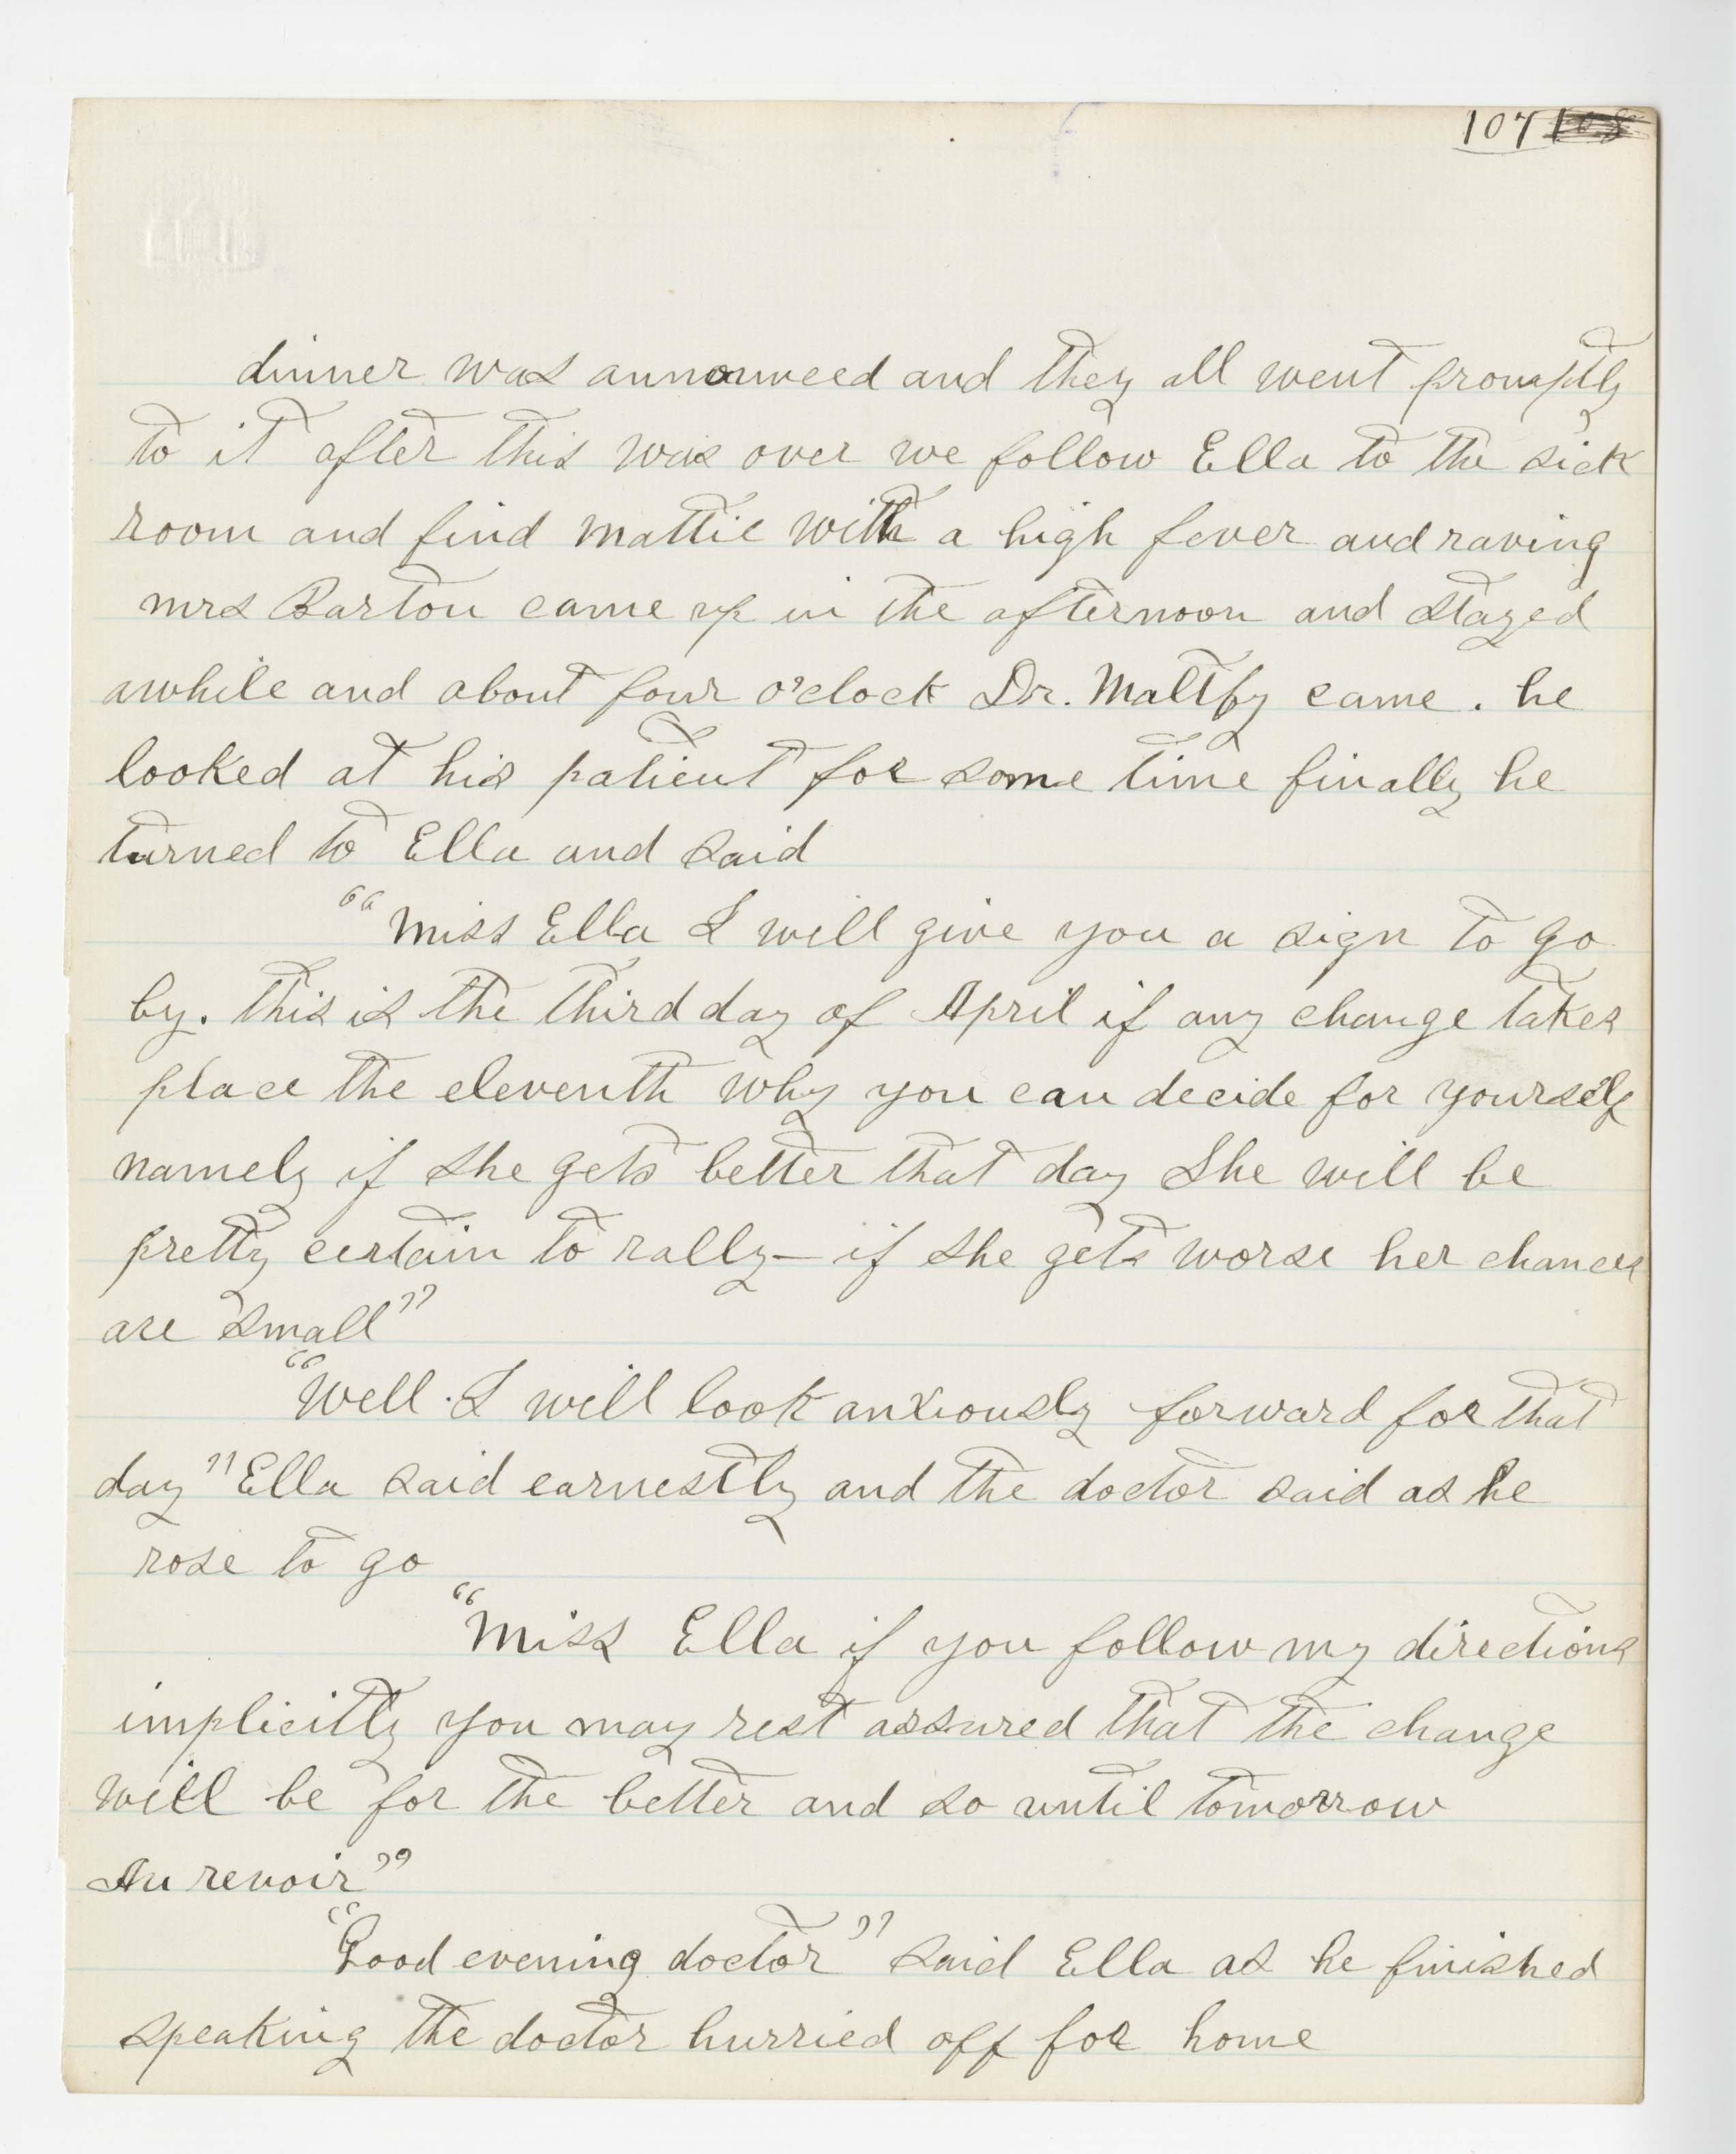 107 108
dinner was announced and they all went promptly
to it after this was over we follow Ella to the sick
room and find Mattie with a high fever and raving
mrs Barton came up in the afternoon and stayed
awhile and about four o'clock Dr. Maltby came. he
looked at his patient for some time finally he
turned to Ella and said
"Miss Ella I will give you a sign to go
by. this is the third day of April if any change takes
place the eleventh why you can decide for yourself
namely if she gets better that day She will be
pretty certain to rally — if she gets worse her chances
are small"
"Well. I will look anxiously forward for that
day" Ella said earnestly and the doctor said as he
rose to go
"Miss Ella if you follow my directions
implicitly you may rest assured that the change
will be for the better and so until tomorrow
Au revoir"
"Good evening doctor" said Ella as he finished
speaking the doctor hurried off for home